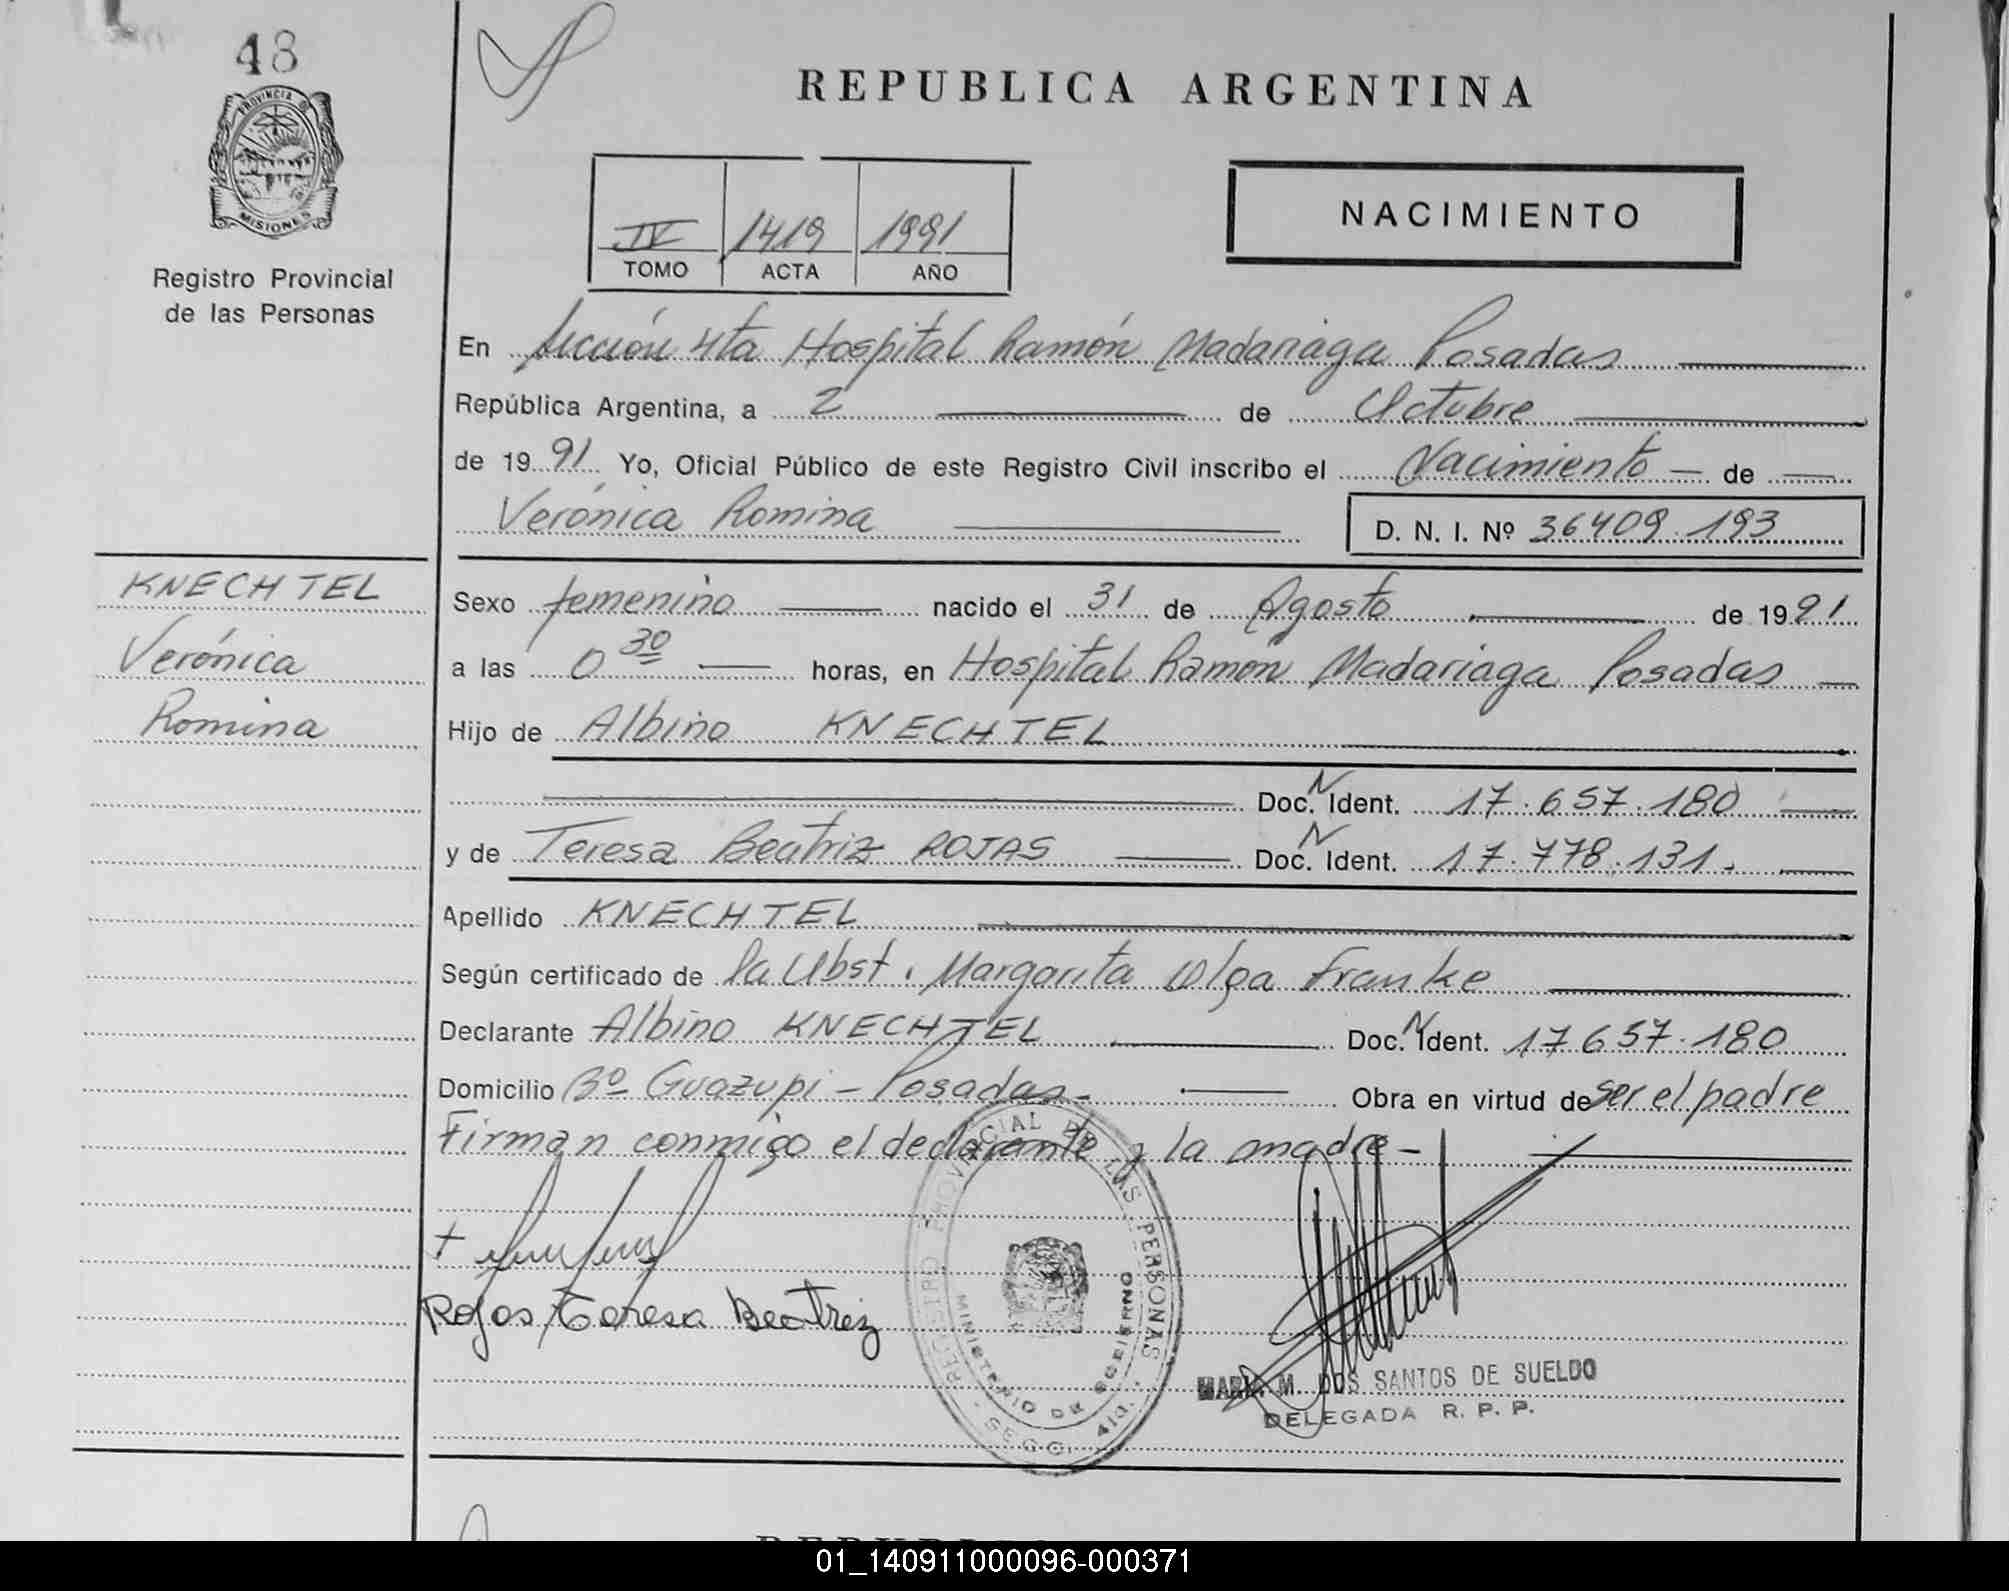 48
PROVINCIA DE
MISIONES
Registro Provincial
de las Personas
REPUBLICA ARGENTINA
IV 1419 1991
TOMO ACTA AÑO
NACIMIENTO
En Sección 4ta Hospital Ramón Madariaga Posadas
República Argentina, a 2 de Octubre
de 1991 Yo, Oficial Público de este Registro Civil inscribo el Nacimiento de
Verónica Romina
D. N. I. Nº 36409.193
KNECHTEL
Verónica
Romina
Sexo femenino nacido el 31 de Agosto de 1991
a las 0 30 horas, en Hospital Ramón Madariaga Posadas
Hijo de Albino KNECHTEL
Doc. N Ident. 17.657.180
y de Teresa Beatriz ROJAS Doc. N Ident. 17.778.131.
Apellido KNECHTEL
Según certificado de la Obst. Margarita Olga Franke
Declarante Albino KNECHTEL Doc. N Ident. 17657.180
Domicilio Bº Guazupi - Posadas - Obra en virtud de ser el padre
Firman conmigo el declarante y la madre -
Rojas Teresa Beatriz
REGISTRO PROVINCIAL DE LAS PERSONAS
MINISTERIO DE GOBIERNO
SECC. 4ta.
MARIA M. DOS SANTOS DE SUELDO
DELEGADA R. P. P.
01_140911000096-000371